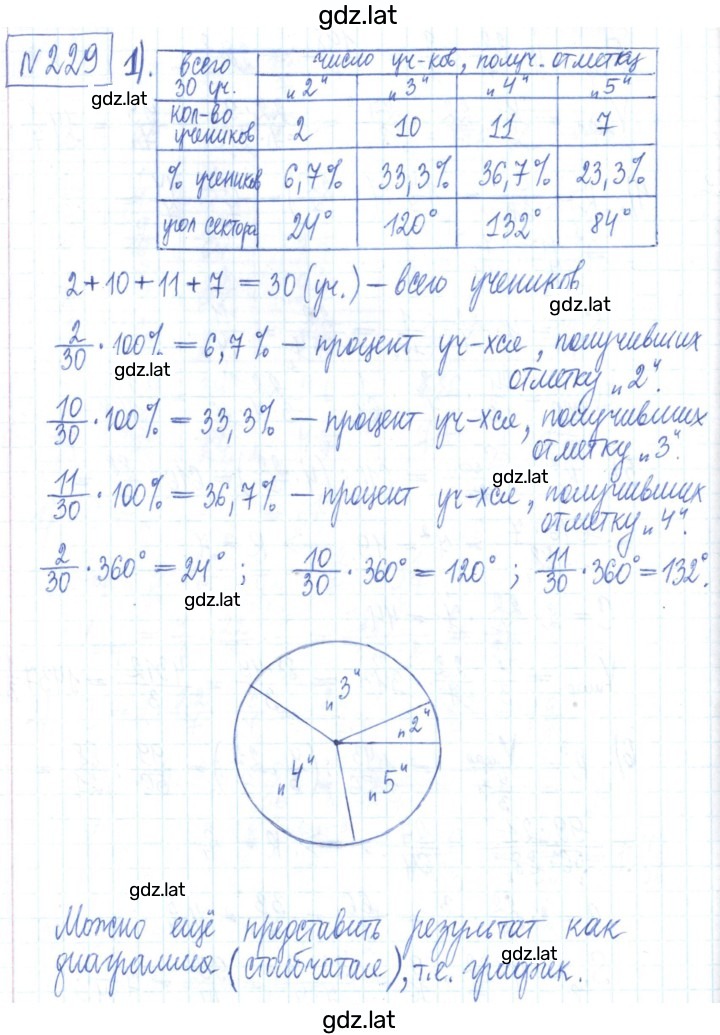 gdz.lat
№229 1). всего 30 уч. число уч-ков, получ. отметку
gdz.lat „2" „3" „4" „5"
кол-во учеников 2 10 11 7
% учеников 6,7% 33,3% 36,7% 23,3%
угол сектора 24° 120° 132° 84°
2+10+11+7 = 30 (уч.) – всего учеников
gdz.lat
2/30 · 100% = 6,7% – процент уч-хся, получивших
gdz.lat
отметку „2".
10/30 · 100% = 33,3% – процент уч-хся, получивших
отметку „3".
gdz.lat
11/30 · 100% = 36,7% – процент уч-хся, получивших
отметку „4".
2/30 · 360° = 24° ; 10/30 · 360° = 120° ; 11/30 · 360° = 132°.
gdz.lat
„3"
„2"
„4"
„5"
gdz.lat
Можно ещё представить результат как
gdz.lat
диаграмма (столбчатая), т.е. график.
gdz.lat